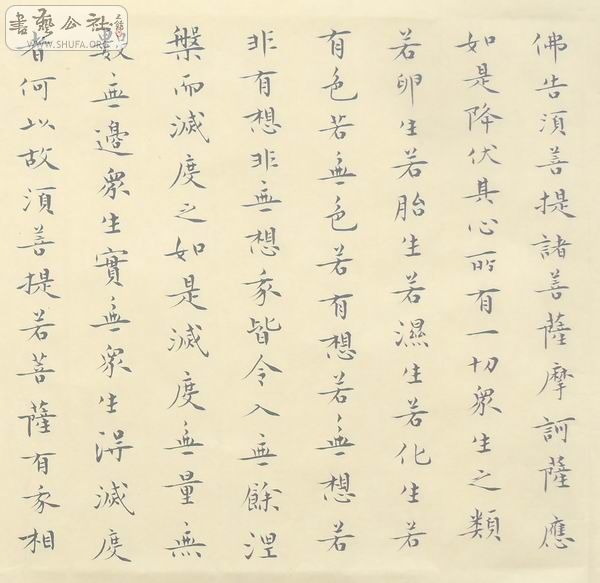 佛告須善提諸善薩摩訶薩應
如是降伏其心所有一切眾生之類
若卵生若胎生若濕生若化生若
有色若無色若有想若無想若
非有想非無想我皆令入無餘涅
槃而滅度之如是滅度無量無
數無邊眾生實無眾生得滅度
者何以故須善提若菩薩有我相
書藝公社
WWW.SHUFA.ORG